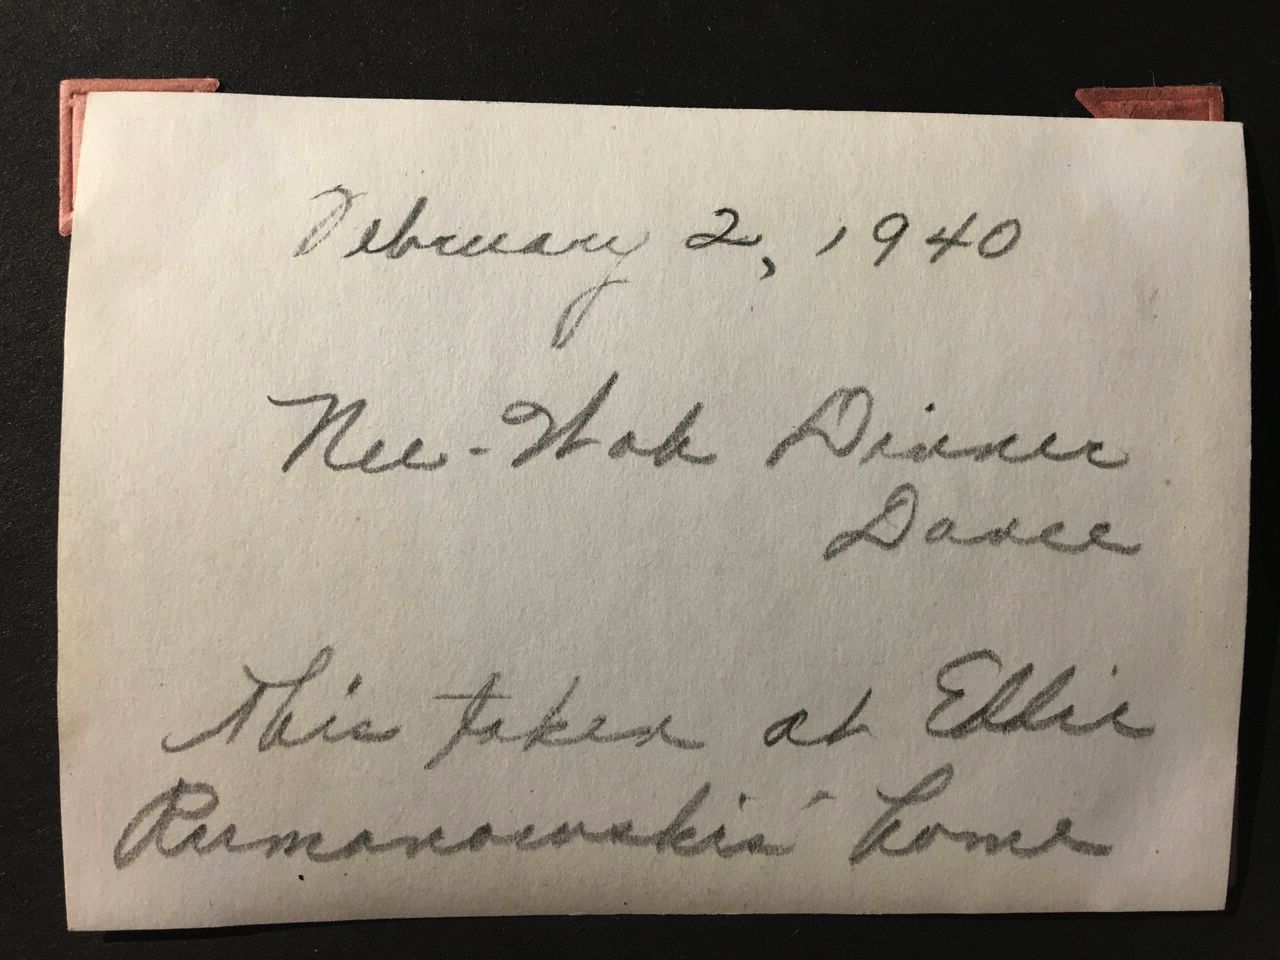 February 2, 1940
Nee-Hoh Dinner
Dance
This taken at Eddie
Rumanowskis' home